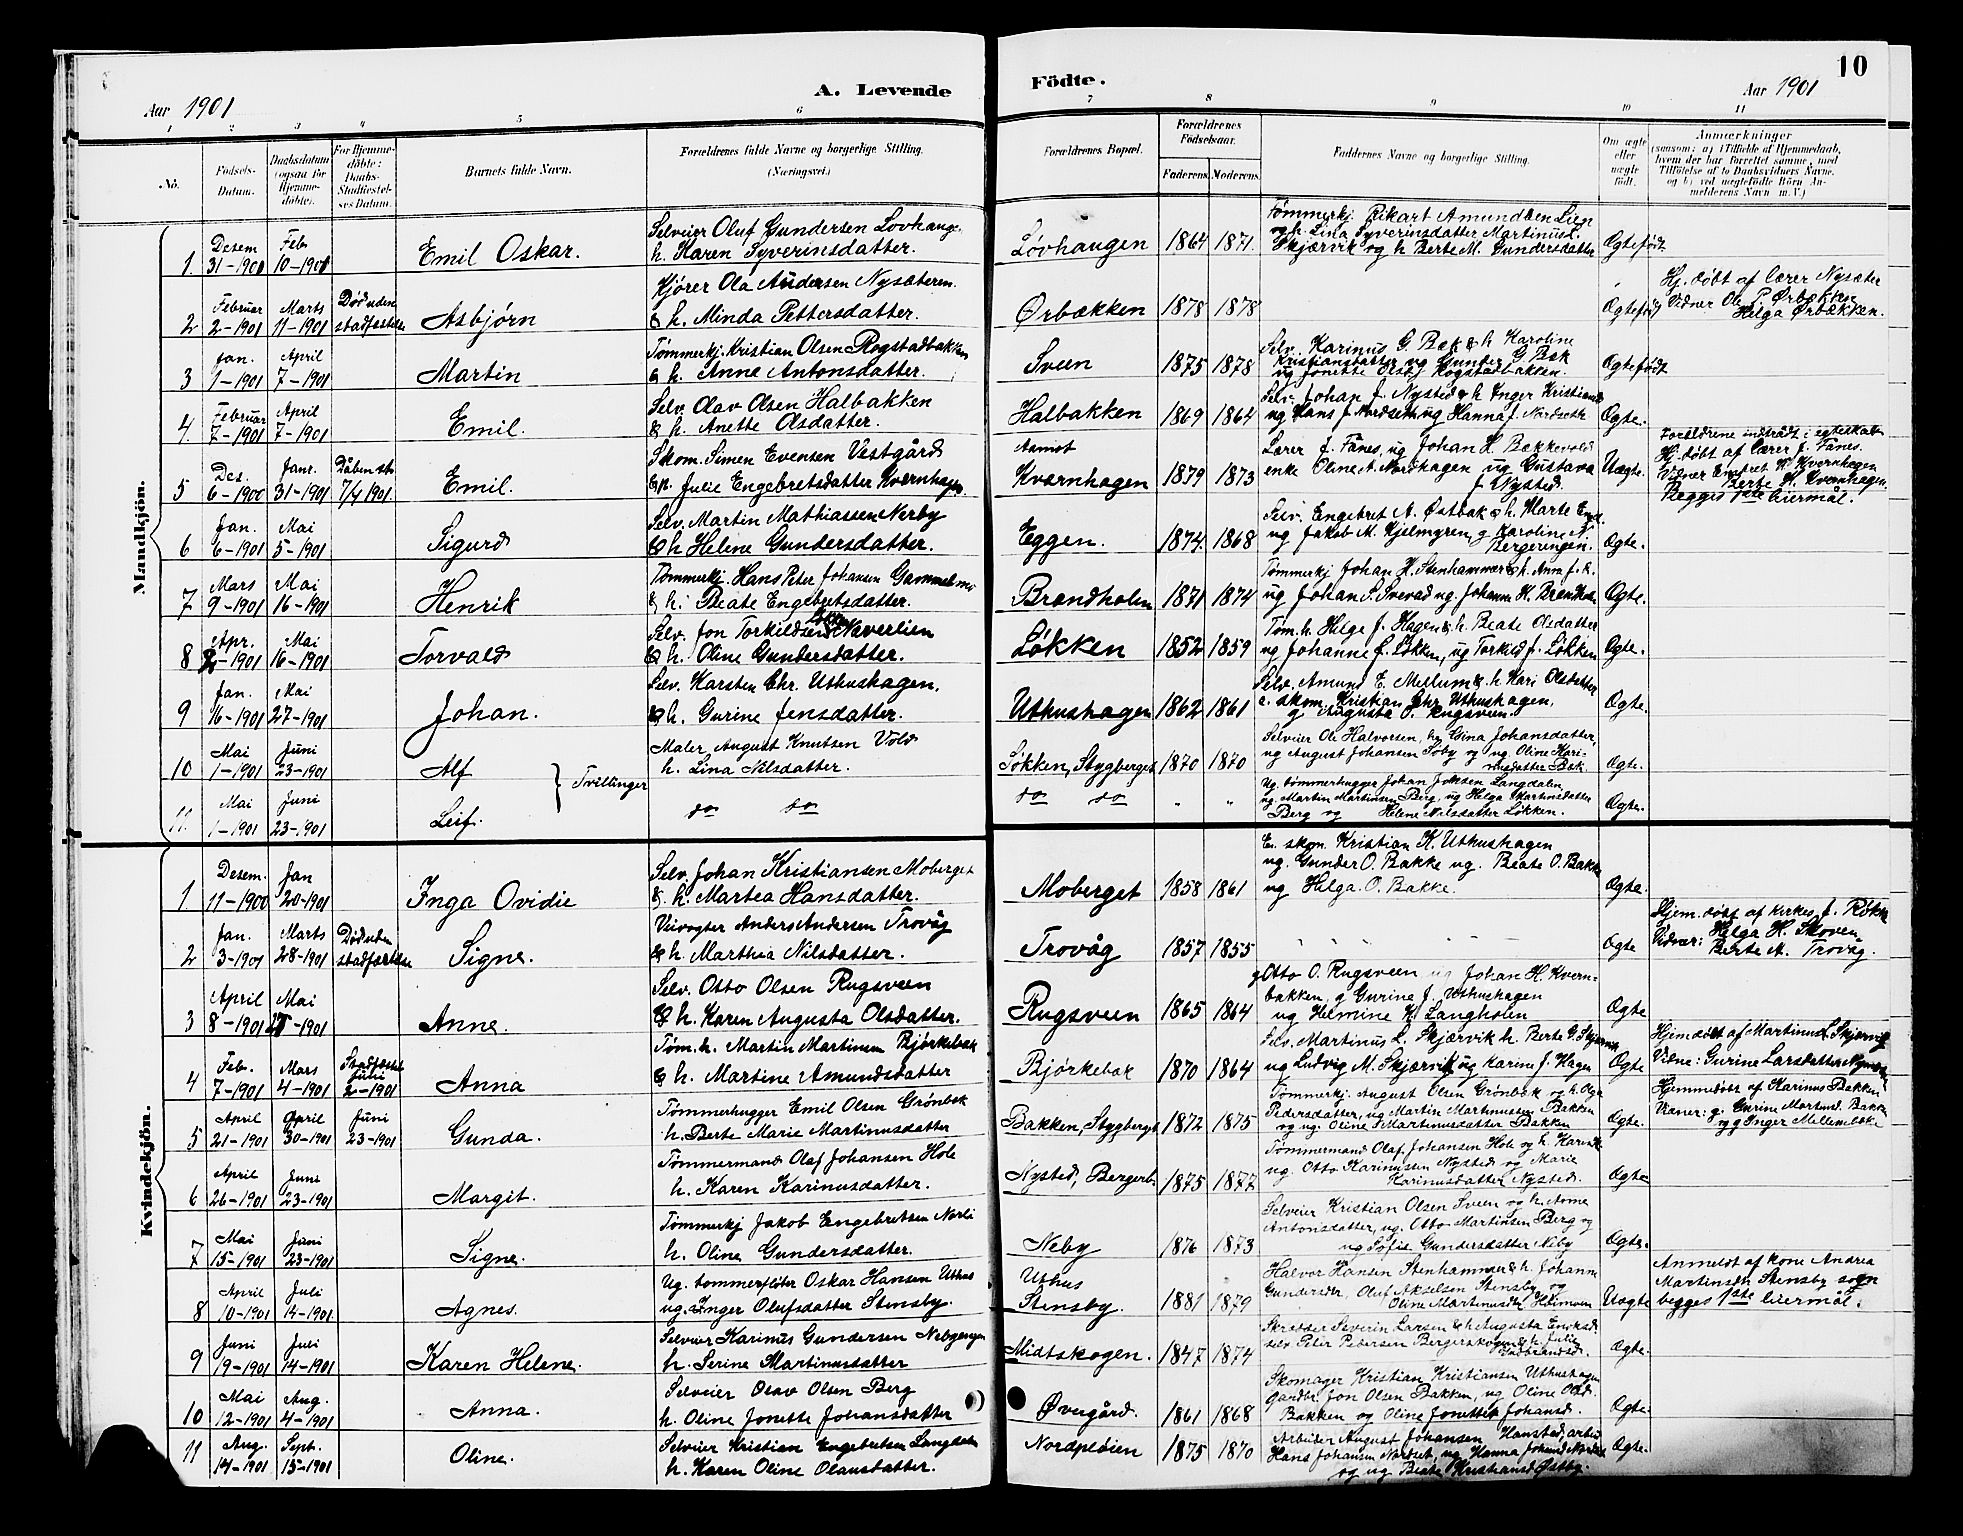 10
A. Levende Födte.
Aar 1901
Aar 1901
1 2 3 4 5 6 7 8 9 10 11
No.
Födsels-Datum.
Daabsdatum (ogsaa for Hjemme-döbte).
For Hjemme-döbte: Daabs-Stadfæstel-ses Datum.
Barnets fulde Navn.
Forældrenes fulde Navne og borgerlige Stilling. (Næringsvei.)
Forældrenes Bopæl.
Forældrenes Fødselsaar.
Faderens. Moderens.
Faddernes Navne og borgerlige Stilling.
Om ægte eller uægte født.
Anmærkninger
(saasom: a) i Tilfælde af Hjemmedaab, hvem der har forrettet samme, med Tilföielse af to Daabsvidners Navne, og b) ved uægtefödte Börn An-melderens Navn m. V.)
Mandkjön.
1. Desem 31-1900 Feb 10-1901 Emil Oskar.
Selveier Oluf Gundersen Lovhauge.
h. Karen Syverinsdatter.
Lovhaugen 1864 1871.
Tømmerkj. Rikart Amundsen Lien
og h. Lina Syverinsdatter Martinus L.
Skjærvik og h Berte M. Gundersdatter
Ogtefødt
2 Februar 2-1901 Marts 11-1901 Død uden stadfæstelse Asbjørn
Kjører Ola Andersen Nysæteren.
& h. Minda Pettersdatter.
Ørbækken 1878 1878 Ogtefødt
Hj. døbt af Lærer Nysæter
Vidner Ole P. Ørbækken
Helga Ørbækken.
3 Jan. 1-1901 April 7-1901 Martin
Tømmerkj. Kristian Olsen Rogstadbakken
& h. Anne Antonsdatter.
Sveen 1875 1878
Selv. Karinus G. Bæk & h Karoline
Kristiansdatter ug Gunder G. Bæk
ug Jonette Olsby Rogstadbakken.
Ogtefødt
4. Februar 7-1901 April 7-1901 Emil.
Selv. Olav Olsen Halbakken
& h. Anette Olsdatter.
Halbakken 1869 1864
Selv. Johan J. Nysted & h Inger Kristiansd
ug Hans J. Nordseth ug Hanna J. Nordseth
Ogte.
5 Des. 6-1900 Janr. 31-1901 Dåben st. 7/4 1901 Emil.
Skom. Simen Evensen Vestgård
& p. Julie Engebretsdatter Kvernhagen
Aamot
Kværnhagen 1879 1873
Lærer J. Fånes, ug Johan H. Bækkevold
enke Oline A. Nordhagen ug Gustava
J. Nysted.
Uægte.
Forældrene indtråd i egteskab
Hj. døbt af Lærer J. Fånes.
Vidner Engebret K. Kvernhagen
Berte K. Kvernhagen.
Begges 1ste leiermål.
6 Jan. 6-1901 Mai 5-1901 Sigurd
Selv. Martin Mathiassen Nerby
& h Helene Gundersdatter.
Eggen. 1874. 1868
Selv. Engebret A. Østbak & h. Marte Eng.
ug Jakob M. Kjelmyren, g Karoline N.
Bergeringen.
Ogte.
7 Mars 9-1901 Mai 16-1901 Henrik
Tømmerkj. Hans Peter Johansen Gammelmo
& h. Beate Engebretsdatter.
Brandholm 1871 1874
Tømmerkj Johan H. Stenhammer & h. Anne J. K.
ug Johan S. Svevad ug. Johanne H. Brandholm
Ogte.
8 Apr. 1901 Mai 16-1901 Torvald
Selv. Jon Torkildsen Næverlien
& h. Oline Gundersdatter.
Løkken 1852 1859
Tøm. h. Helge J. Hagen & h. Beate Olsdatter
ug Johanne J. Løkken, ug Torkild J. Løkken
Ogte.
9 Jan. 16-1901 Mai 27-1901 Johan.
Selv. Karsten Chr. Uthushagen.
& h. Gurine Jensdatter.
Uthushagen 1862 1861
Selv. Amund E. Mellum & h. Kari Olsdatter
e. skom. Kristian Chr Uthushagen,
g Augusta O. Rugsveen.
Ogte.
10 Mai 1-1901 Juni 23-1901 Alf } Tvillinger
Maler August Knutsen Vold
h. Lina Nilsdatter.
Løkken, Stygberget 1870 1870
Selveier Ole Halvorsen, h. Gina Johansdatter,
ug August Johansen Søby og ug Oline Kari-
nusdatter Bæk.
Ogte.
11. Mai 1-1901 Juni 23-1901 Leif.
do do
do do " "
Ug. tømmerhugger Johan Johsen Langdalen,
ug. Martin Martinsen Berg, ug Helga Martinsdatter
Berg og Helene Nilsdatter Løkken.
Ogte.
Kvindekjön.
1 Desem. 11-1900 Jan 20-1901 Inga Ovidie
Selv. Johan Kristiansen Moberget
& h. Martea Hansdatter.
Moberget 1858 1861
E. skom. Kristian K. Uthushagen
ug. Gunder O. Bakke ug. Beate O. Bakke
ug Helga. O. Bakke.
Ogte.
2 Jan. 3-1901 Marts 28-1901 Død uden stadfæstelse Signe.
Veivogter Anders Andersen Trovåg
& h. Marthea Nilsdatter.
Trovåg 1857 1855 Ogte
Hjem. døbt af Kirkes. J. Røkke
Vidner: Helga H. Skoven,
Berte A. Trovåg.
3 April 8-1901 Mai 1901 Anne.
Selv. Otto Olsen Rugsveen
& h. Karen Augusta Olsdatter.
Rugsveen 1865 1864
g Otto O. Rugsveen ug Johan H. Kvern-
bakken, g Gurine J. Uthushagen
ug Helmine K. Langholen
Ogte
4 Feb. 7-1901 Mars 4-1901 Stadfæstet Juni 2-1901 Anna
Tøm. h. Martin Martinsen Bjørkebæk
& h. Martine Amundsdatter
Bjørkebæk 1870 1864
Selv. Martinus L. Skjærvik h. Berte G. Skjærvik
ug Ludvig M. Skjærvik ug Karine J. Hagen
Ogte
Hjemdøbt af Martinus L. Skjærvik
Vidne: Gurine Larsdatter
5 April 21-1901 April 30-1901 Juni 23-1901 Gunda.
Tømmerhugger Emil Olsen Grønbæk
h. Berte Marie Martinusdatter
Bakken, Stygberget 1872 1875
Tømmerkj. August Olsen Grønbæk og h. Olga
Pedersdatter, ug Martin Martinusen Bakken
og ug. Oline Martinusdatter Bakken
Ogte.
Hjemmedøbt af Karinus Bakken
Vidner: g. Gurine Martinsd. Bakken
og g Inger Mellembakke
6 April 26-1901 Juni 23-1901 Margit.
Tømmermand Olaf Johansen Hole
h. Karen Karinusdatter.
Nysted, Bergerb. 1875 1877
Tømmermand Olaf Johansen Hole og h. Karen K.
ug. Otto Karinusen Nysted og Marie
Karinusdatter Nysted.
Ogte
7 Mai 15-1901 Juni 23-1901 Signe.
Tømmerkj Jakob Engebretsen Norli
h. Oline Gundersdatter.
Neby 1876 1873
Selveier Kristian Olsen Sveen og h. Anne
Antonsdatter, ug. Otto Martinsen Berg og
ug Sofie Gundersdatter Neby
Ogte.
8 April 10-1901 Juli 14-1901. Agnes.
Ug. tømmerfløter Oskar Hansen Uthus
ug. Inger Olufsdatter Stensby.
Uthus
Stensby. 1881 1879
Halvor Hansen Stenhammer & h. Johanne
Gundersdr, Oluf Akselsen Stensby og
Oline Martinusdtr Heimveen
Uægte
Anmeldt af kone Andrea
Martinsdtr Stensby sogn
begges 1ste leiermål.
9 Juni 19-1901 Juli 14-1901 Karen Helene.
Selveier Karinus Gundersen Nebyengen
h. Serine Martinusdatter
Midtskogen. 1847 1874
Skrædder Severin Larsen & h Augusta Eriksd.
selv Peter Pedersen Bergerskogen & h. Julie
Gudbrandsd.
Ogte.
10 Mai 12-1901 Aug. 4-1901 Anna.
Selveier Olav Olsen Berg
h. Oline Jonette Johansdatter
Øvergård. 1861 1868
Skomager Kristian Kristiansen Uthushagen
Gaardbr. Jon Olsen Bakken, ug Oline Olsd.
Bakken og Oline Jonette Johansd.
Ogte.
11 Aug. 14-1901 Sept. 15-1901 Oline.
Selveier Kristian Engebretsen Langdalen
h. Karen Oline Olausdatter.
Nordpløien 1875 1870
Arbeider August Johansen Hanstad, arbei
Hans Johansen Nordset, ug Hanna Johansd Nordset
og ug Beate Kristiansd Østby.
Ogte.